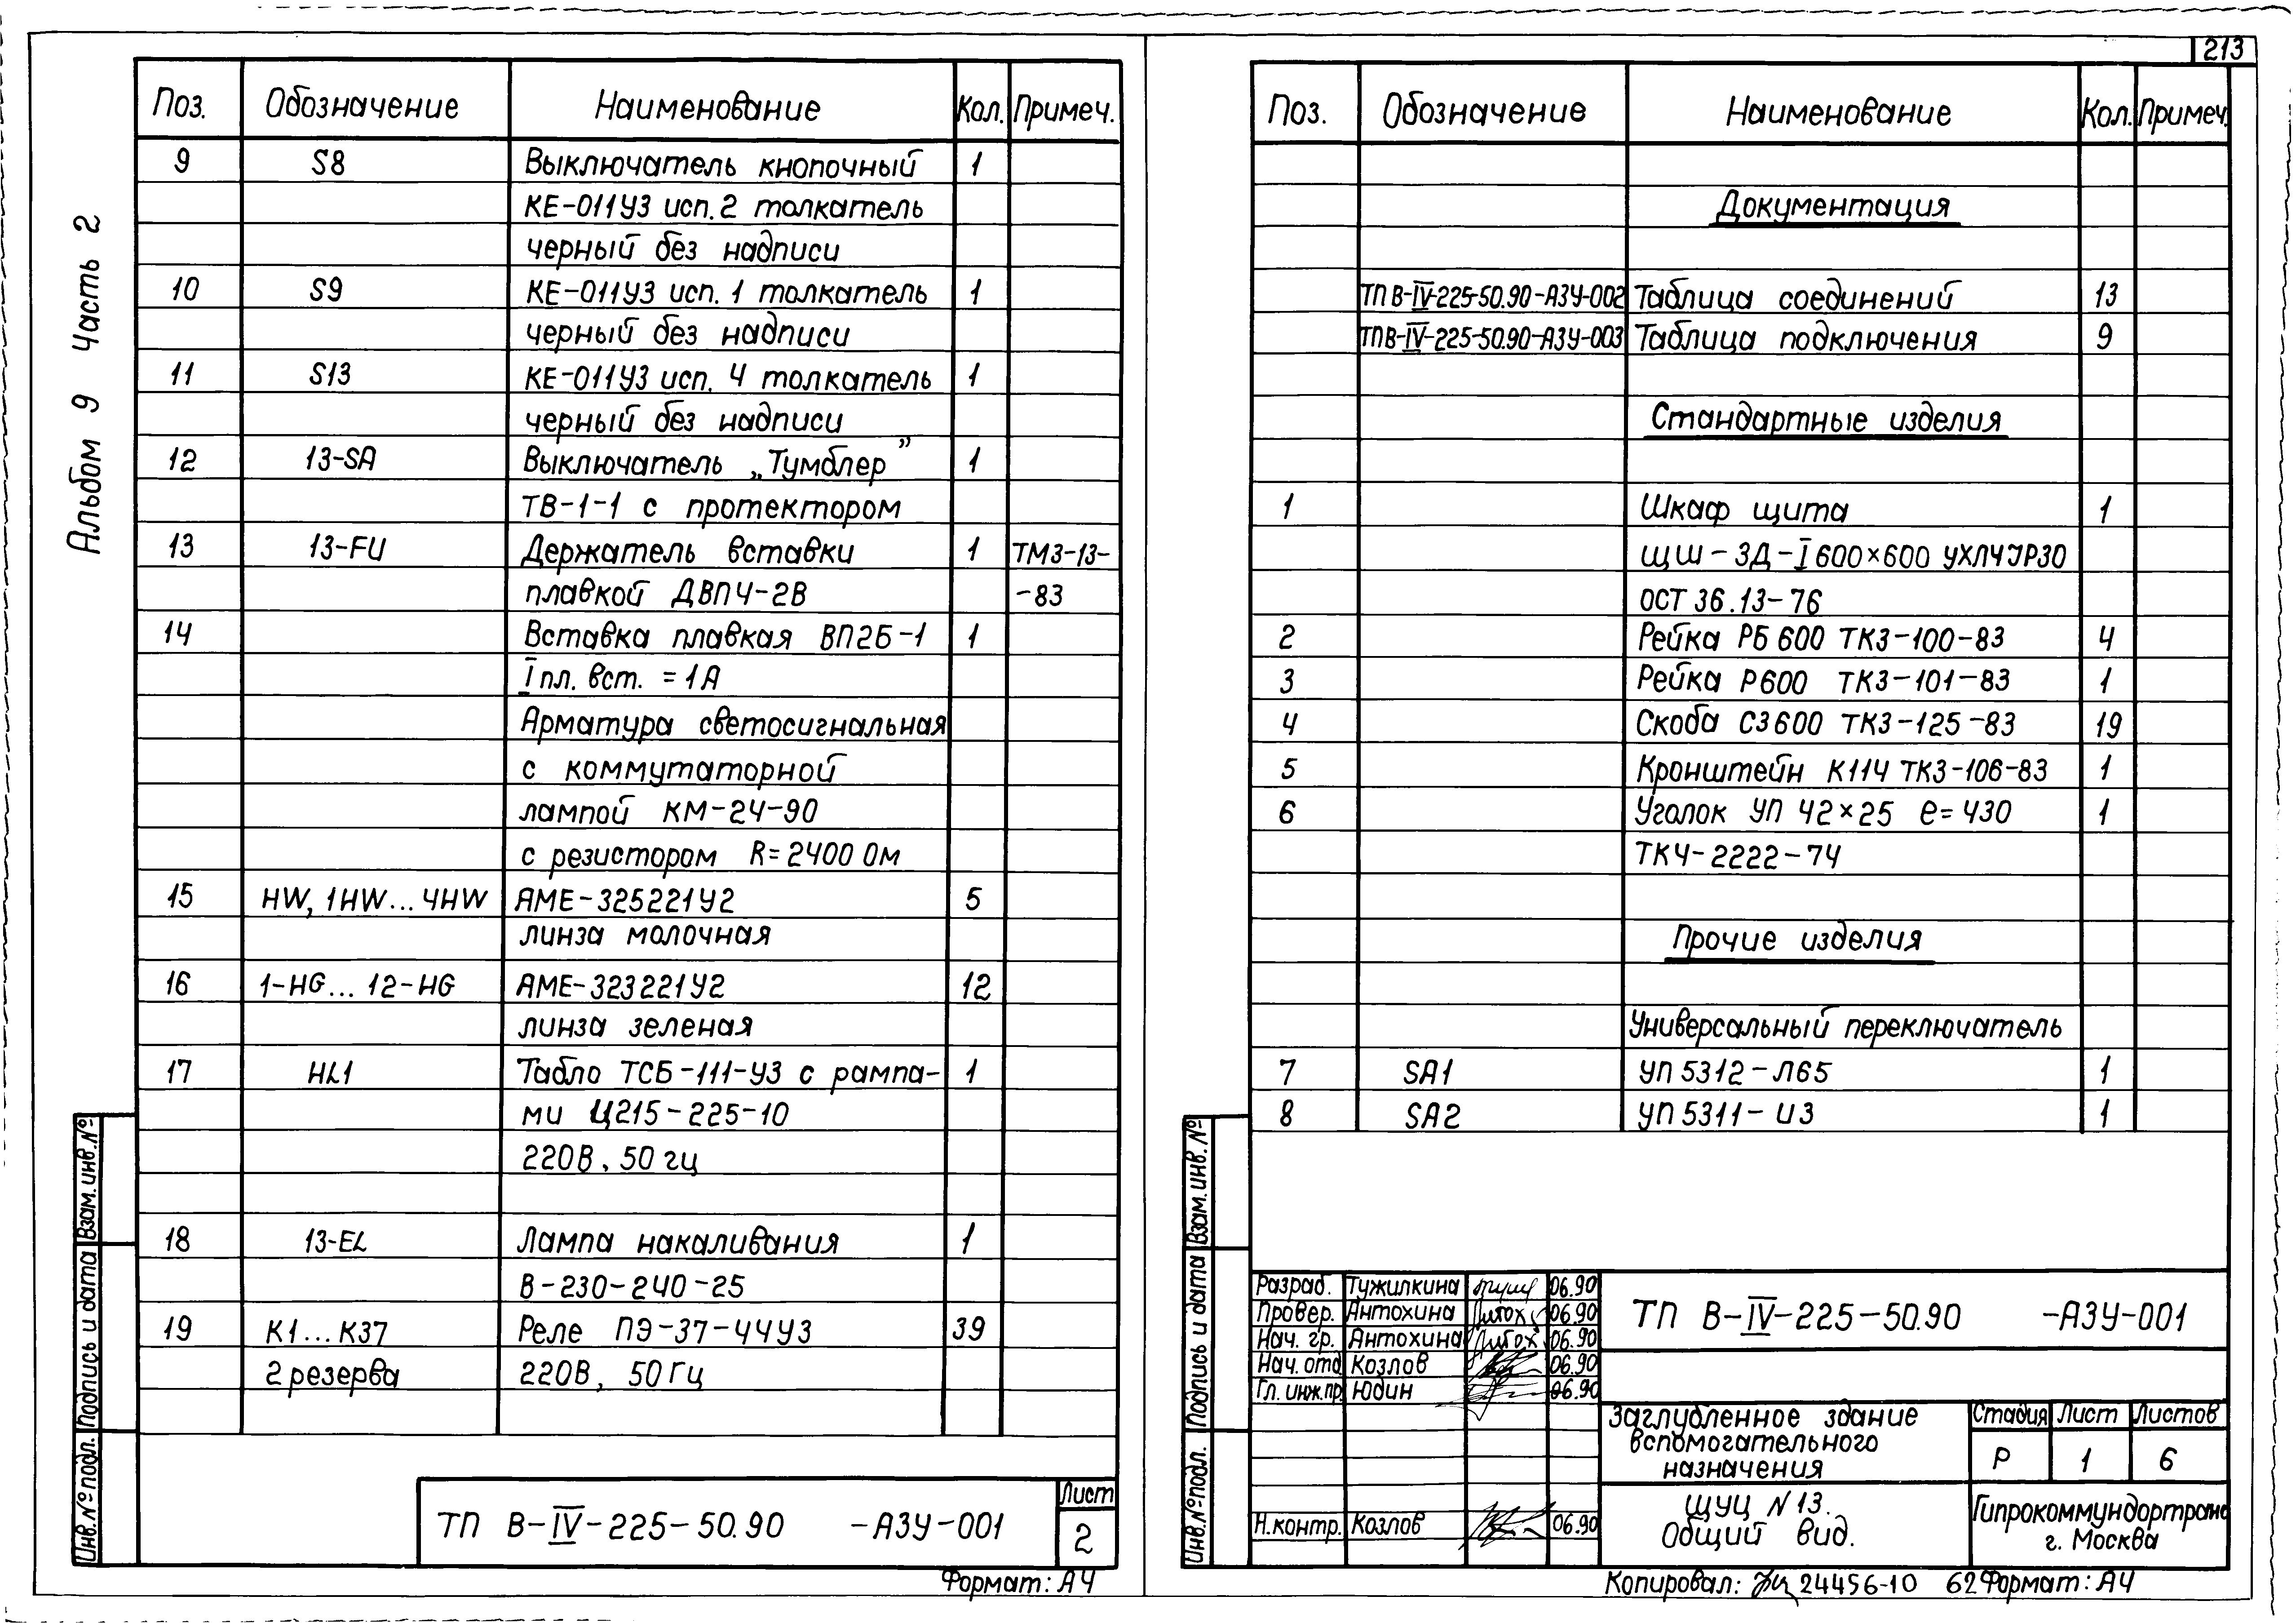 213
Альбом 9 Часть 2
Поз. Обозначение Наименование Кол. Примеч.
9 S8 Выключатель кнопочный 1
КЕ-011У3 исп. 2 толкатель
черный без надписи
10 S9 КЕ-011У3 исп. 1 толкатель 1
черный без надписи
11 S13 КЕ-011У3 исп. 4 толкатель 1
черный без надписи
12 13-SA Выключатель „Тумблер” 1
ТВ-1-1 с протектором
13 13-FU Держатель вставки 1 ТМ3-13-
плавкой ДВП4-2В -83
14 Вставка плавкая ВП2Б-1 1
I пл. вст. = 1А
Арматура светосигнальная
с коммутаторной
лампой КМ-24-90
с резистором R=2400 Ом
15 HW, 1HW...4HW АМЕ-325221У2 5
линза молочная
16 1-HG... 12-HG АМЕ-323221У2 12
линза зеленая
17 HL1 Табло ТСБ-111-У3 с рампа- 1
ми Ц215-225-10
220В, 50 гц
18 13-EL Лампа накаливания 1
В-230-240-25
19 К1...К37 Реле ПЭ-37-44У3 39
2 резерва 220В, 50 Гц
Взам. инв. №
Подпись и дата
Инв. № подл.
ТП В-IV-225-50.90 -АЗУ-001
Лист
2
Формат: А4
Поз. Обозначение Наименование Кол. Примеч.
Документация
ТП В-IV-225-50.90-АЗУ-002 Таблица соединений 13
ТП В-IV-225-50.90-АЗУ-003 Таблица подключения 9
Стандартные изделия
1 Шкаф щита 1
ЩШ-3Д-I 600×600 УХЛ4 IP30
ОСТ 36.13-76
2 Рейка РБ 600 ТК3-100-83 4
3 Рейка Р600 ТК3-101-83 1
4 Скоба С3600 ТК3-125-83 19
5 Кронштейн К114 ТК3-106-83 1
6 Уголок УП 42×25 ℓ=430 1
ТК4-2222-74
Прочие изделия
Универсальный переключатель
7 SA1 УП 5312-Л65 1
8 SA2 УП 5311-И3 1
Взам. инв. №
Подпись и дата
Инв. № подл.
Разраб. Тужилкина 06.90
Провер. Антохина 06.90
Нач. гр. Антохина 06.90
Нач. отд Козлов 06.90
Гл. инж. пр. Юдин 06.90
Н. контр. Козлов 06.90
ТП В-IV-225-50.90 -АЗУ-001
Заглубленное здание
вспомогательного
назначения
Стадия Лист Листов
Р 1 6
ЩУЦ N 13.
Общий вид.
Гипрокоммундортранс
г. Москва
Копировал: 24456-10 62 Формат: А4